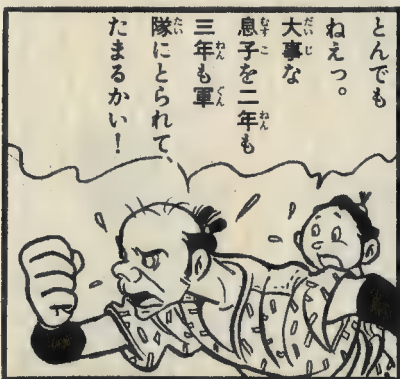 とんでも
ねえっ。
大事な
息子を二年も
三年も軍
隊にとられて、
たまるかい！